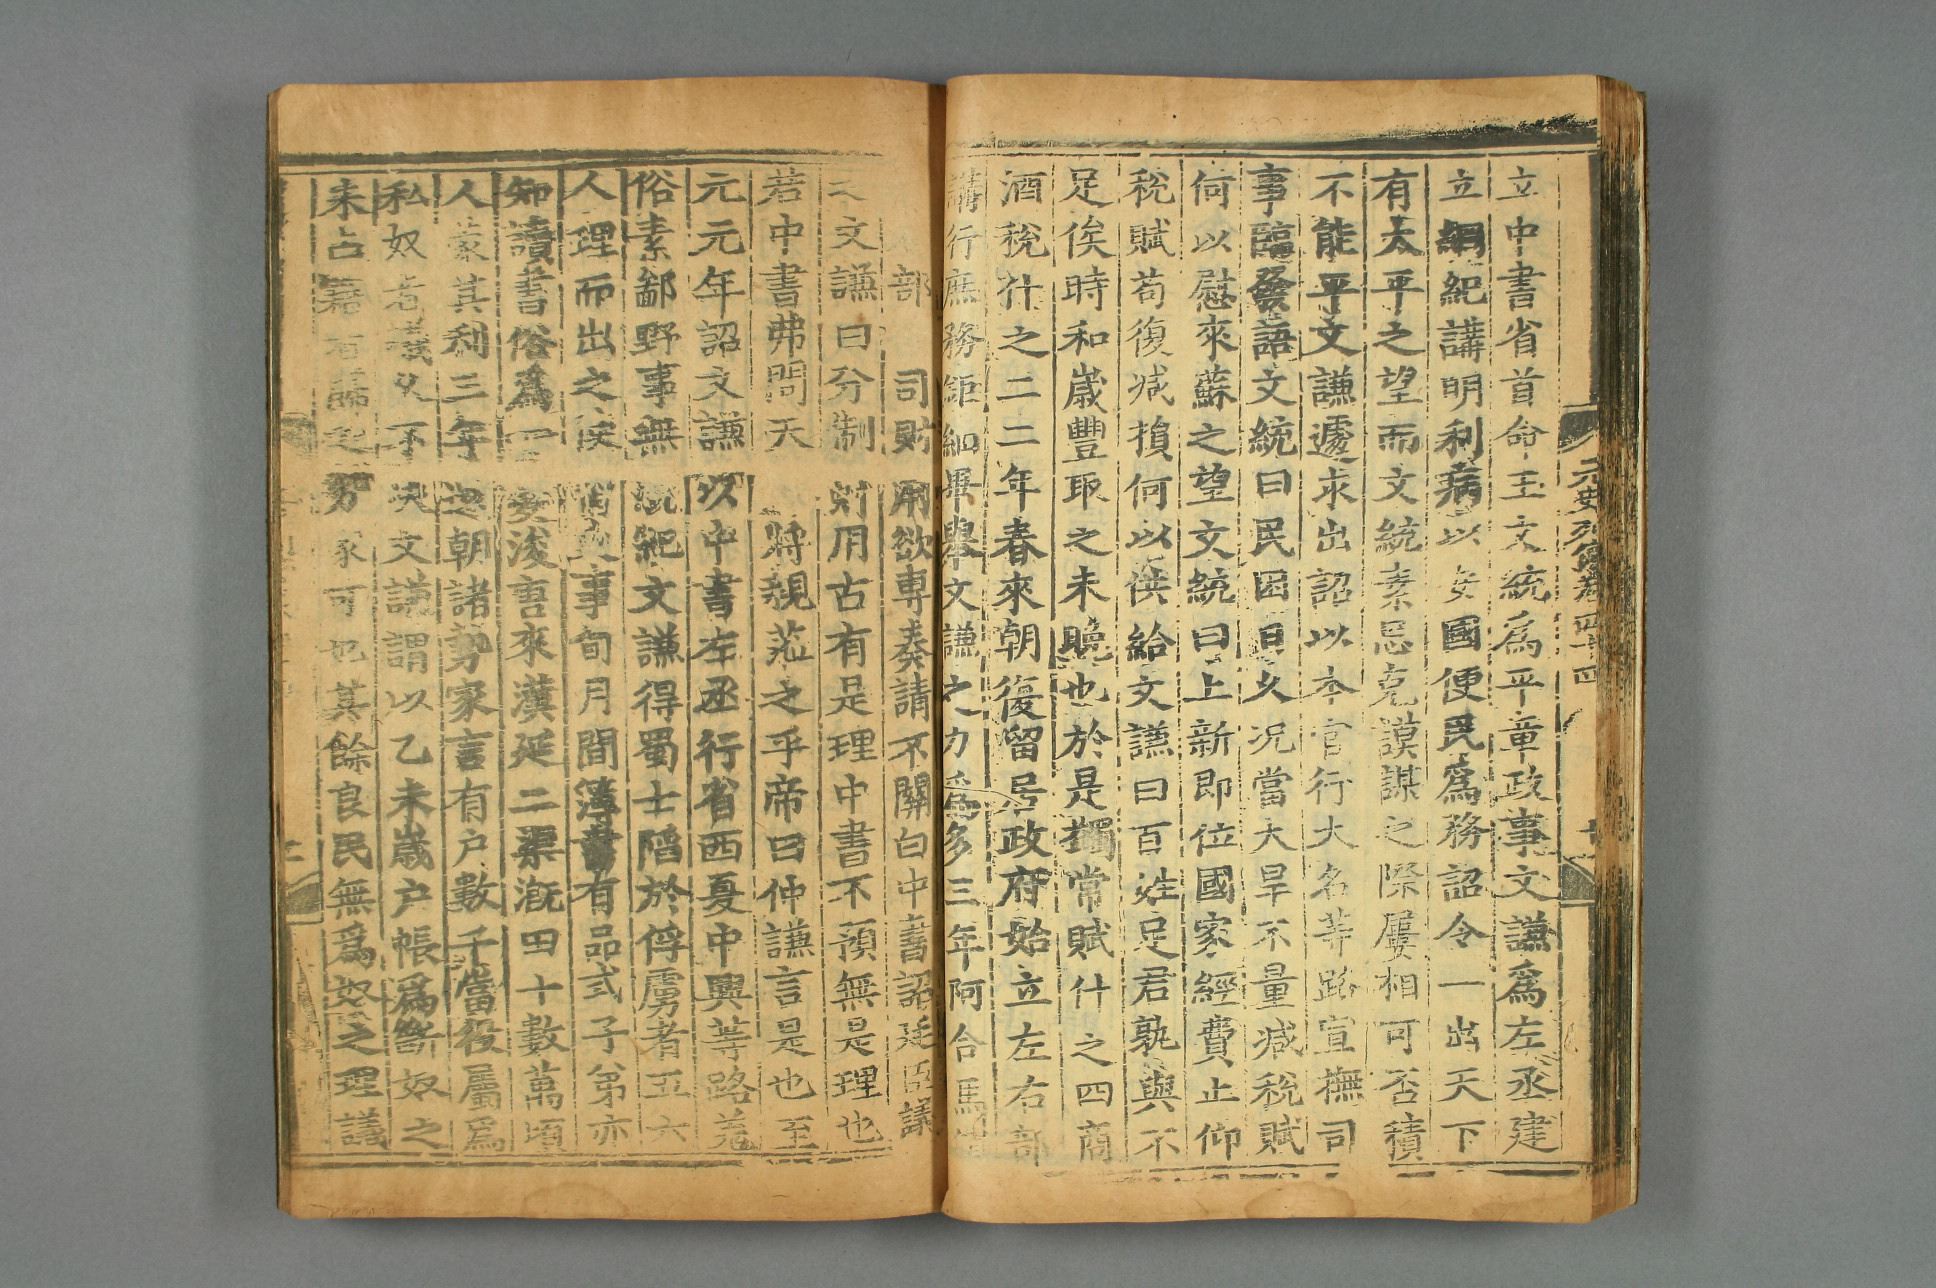 元史列傳卷四十四
立中書省首命王文統爲平章政事文謙爲左丞建
立綱紀講明利病以安國便民爲務詔令一出天下
有太平之望而文統素忌克謨謀之際屢相可否積
不能平文謙遽求出詔以本官行大名等路宣撫司
事臨發語文統曰民困日久况當大旱不量減稅賦
何以慰來蘇之望文統曰上新即位國家經費止仰
稅賦苟復减損何以供給文謙曰百姓足君孰與不
足俟時和歲豐取之未晚也於是蠲常賦什之四商
酒稅什之二二年春來朝復留居政府始立左右部
講行庶務鉅細畢舉文謙之力爲多三年阿合馬
部司財用欲專奏請不關白中書詔廷臣議
之文謙曰分制財用古有是理中書不預無是理也
若中書弗問天將親莅之乎帝曰仲謙言是也至
元元年詔文謙以中書左丞行省西夏中興等路羌
俗素鄙野事無統紀文謙得蜀士陷於俘虜者五六
人理而出之使習吏事旬月間簿書有品式子弟亦
知讀書俗爲一變浚唐來漢延二渠溉田十數萬頃
人蒙其利三年還朝諸勢家言有户數千當役屬爲
私奴者議久不决文謙謂以乙未歲户帳爲斷奴之
未占籍者歸之勢家可也其餘良民無爲奴之理議